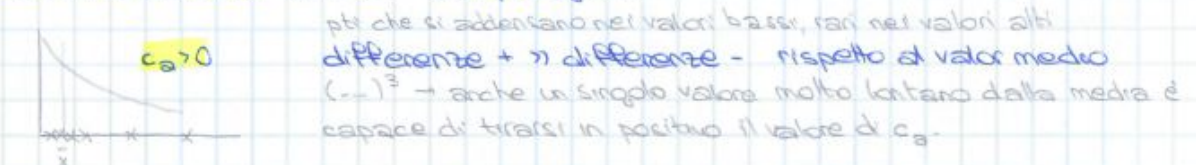 pti che si addensano nei valori bassi, rari nei valori alti
c_a>0
differenze + >> differenze - rispetto al valor medio
(...)³ → anche un singolo valore molto lontano dalla media è
capace di tirarsi in positivo il valore di c_a.
x̄